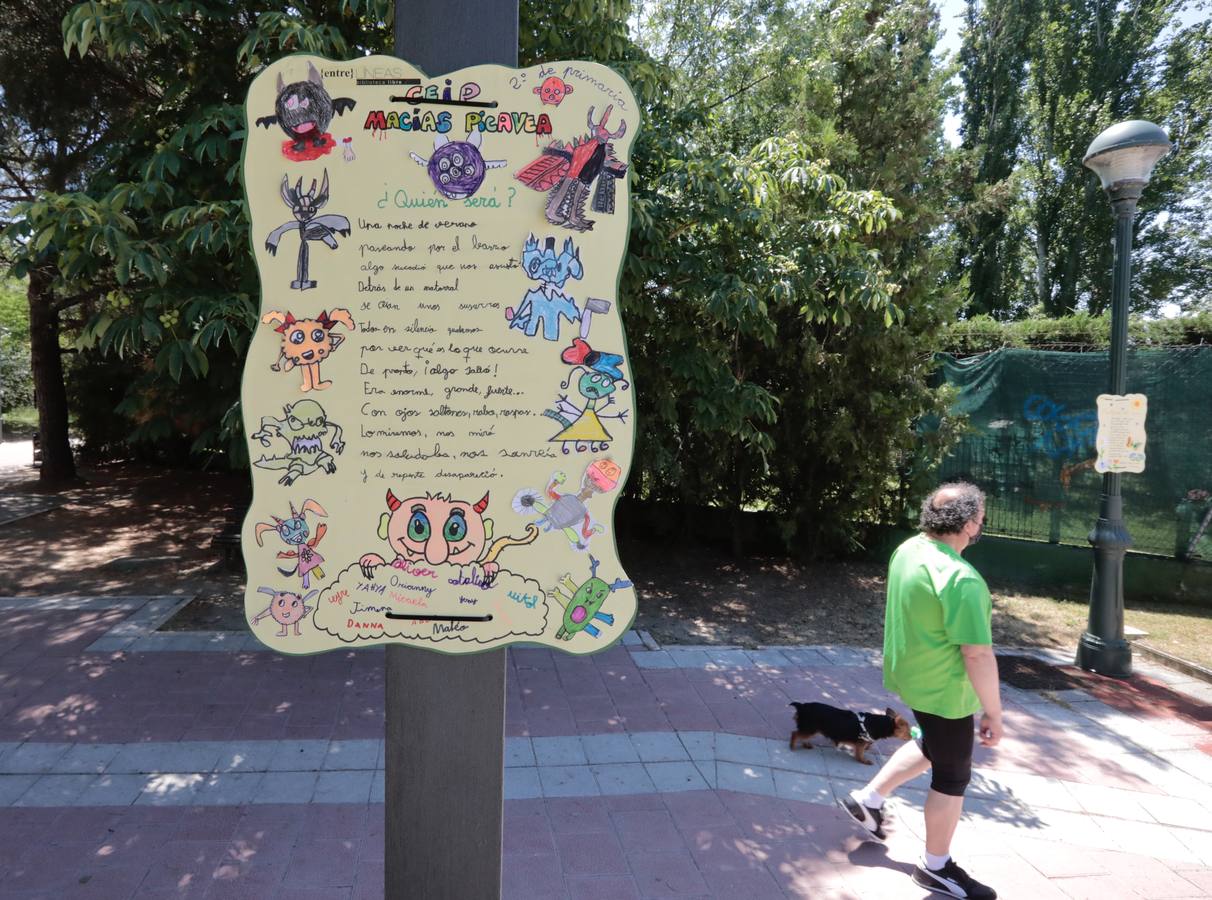 {entre}LÍNEAS
biblioteca libre
CEIP
2º de primaria
MACÍAS PICAVEA
¿Quién será?
Una noche de verano
paseando por el barrio
algo sucedió que nos asustó
Detrás de un matorral
se oían unos susurros
Todos en silencio quedamos
por ver qué es lo que ocurre
De pronto, ¡algo saltó!
Era enorme, grande, fuerte...
Con ojos saltones, rabo, raspas...
Lo miramos, nos miró
nos saludaba, nos sonreía
y de repente desapareció.
Oliver
YAHYA
Orianny
Micaela
Jimena
DANNA
Mateo